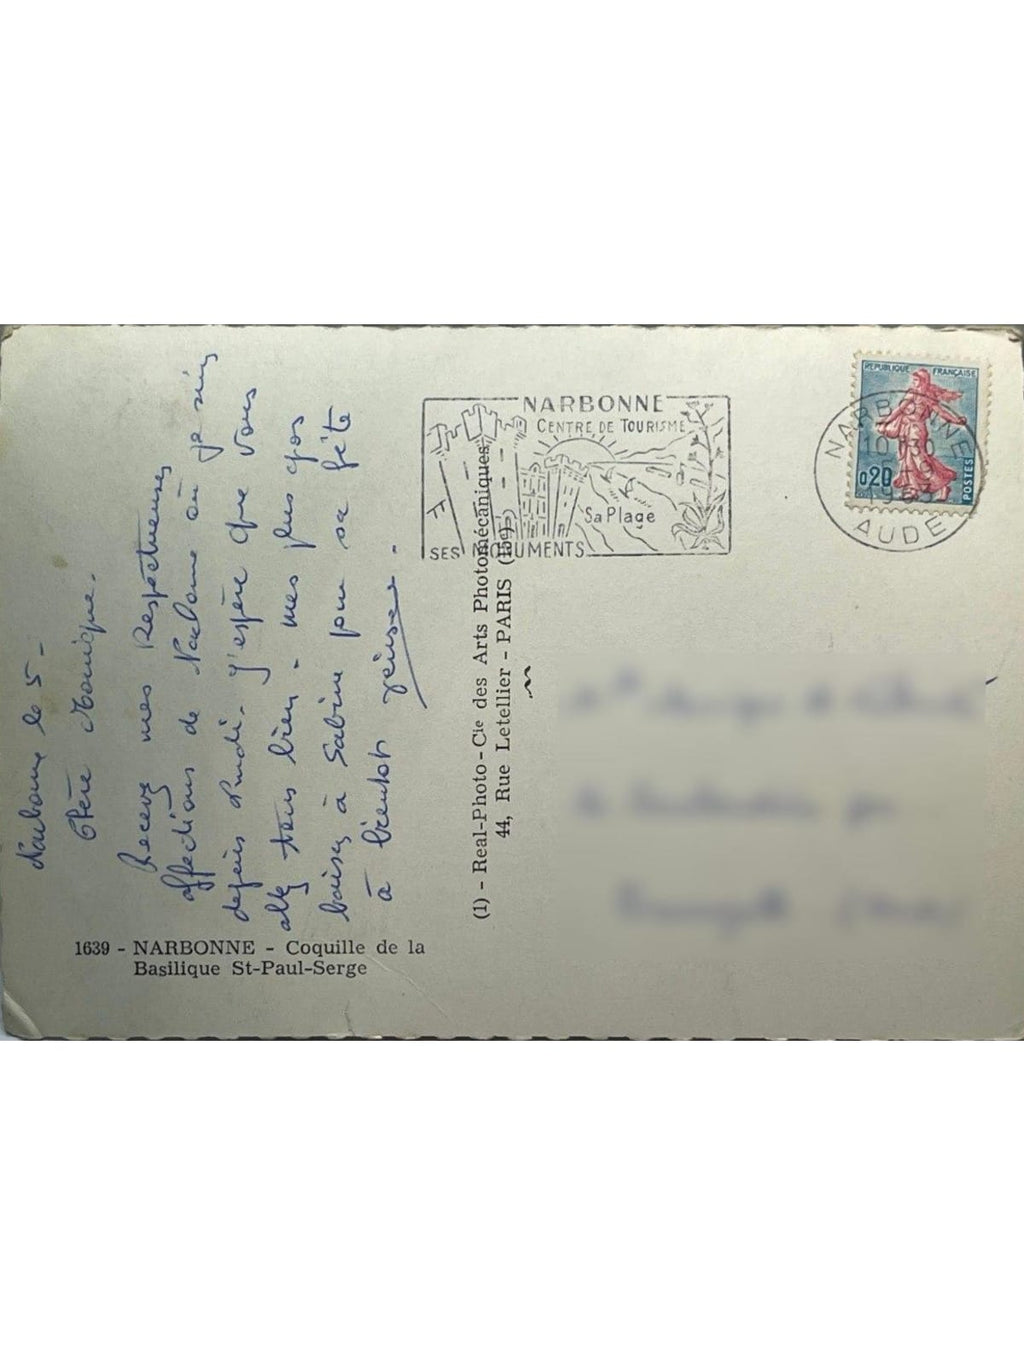 Narbonne le 5 -
Chère Monique.
Recevez mes Respectueuses
affections de Narbonne où je suis
depuis Lundi. J'espère que vous
allez tous bien - mes plus gros
baisers à Sabine pour sa fête
à bientôt
1639 - NARBONNE - Coquille de la
Basilique St-Paul-Serge
(1) - Real-Photo - Cie des Arts Photomécaniques
44, Rue Letellier - PARIS (15e)
NARBONNE
CENTRE DE TOURISME
Sa Plage
SES MONUMENTS
REPUBLIQUE FRANÇAISE
0,20
POSTES
NARBONNE
5 - 9
1963
AUDE